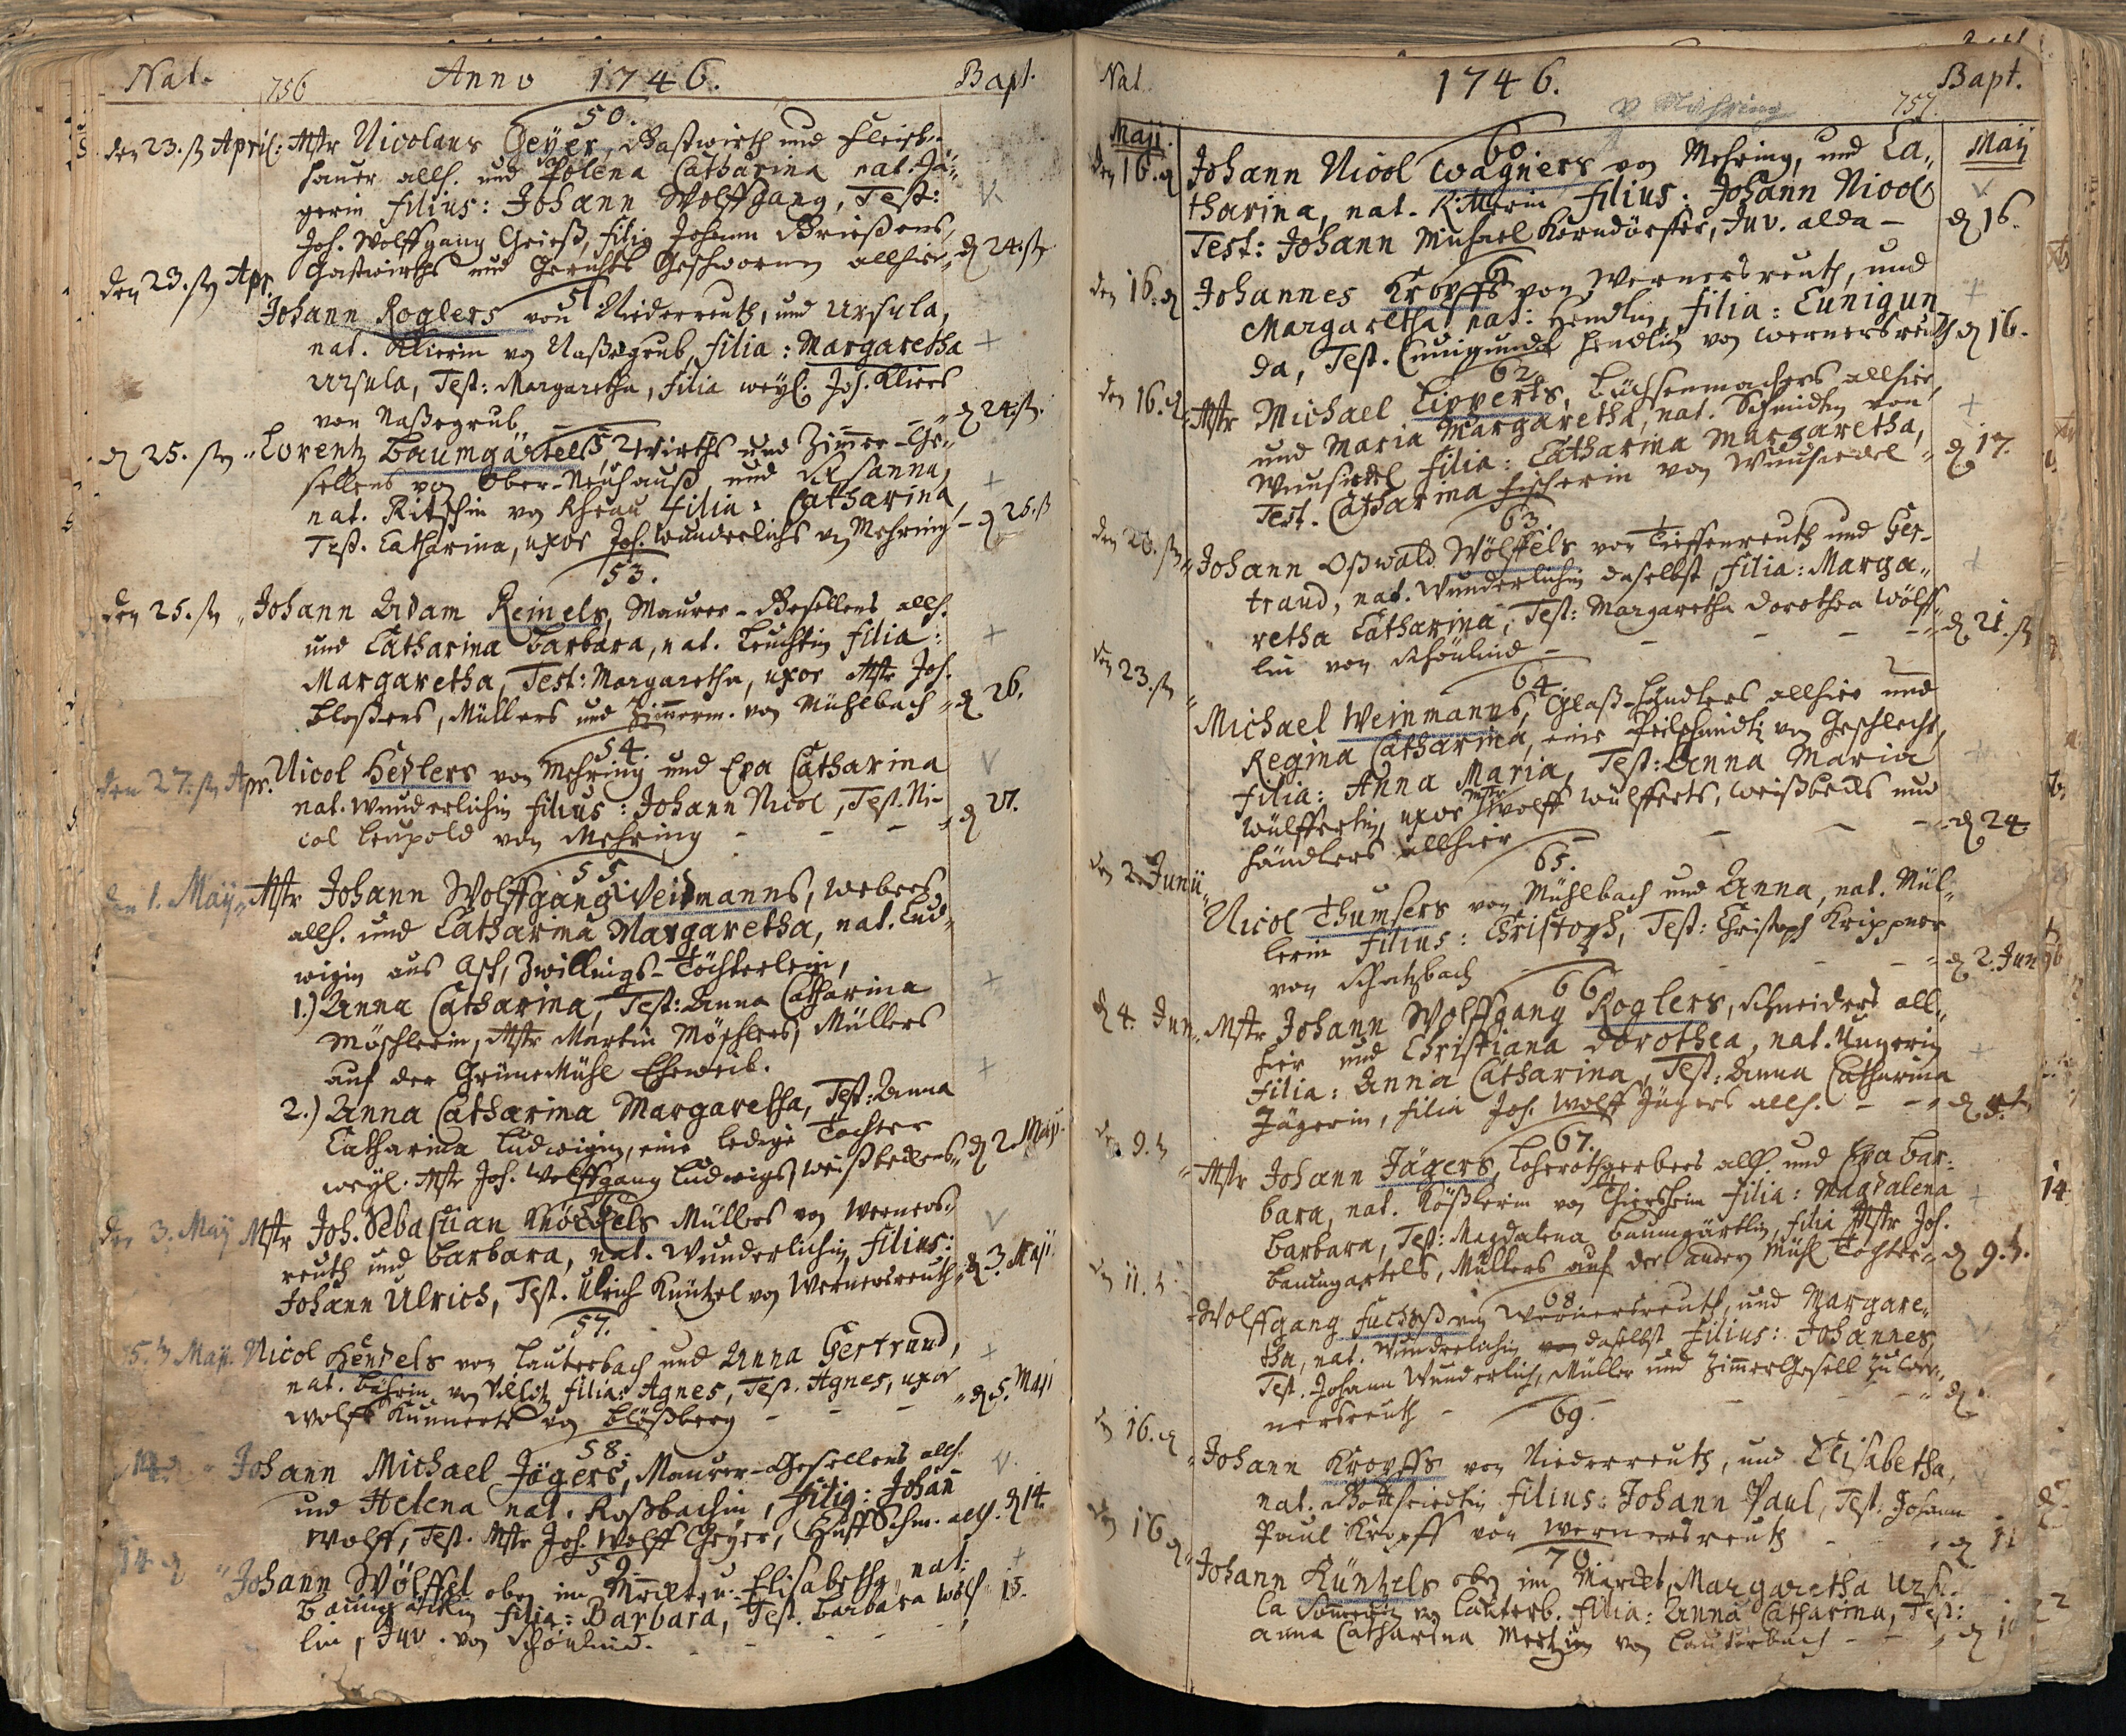 Nat. 756 Anno 1746. Bapt.
50.
den 23. April: Mstr Nicolaus Geyer, Gastwirth und Fleisch-
hauer allh. und Polena Catharina nat. Jä-
gerin filius: Johann Wolffgang, Test:
Joh. Wolffgang Grieß, filig Johann Grießens,
den 23. Apr. Gastwirths und Gerichts Geschwornen allhier d 24.
51
Johann Roglers von Niederreuth, und Ursula,
nat. Klierin von Naßengrub, filia: Margaretha
Ursula, Test: Margaretha, filia weyl. Joh. Kliers
von Naßegrub d 24.
52
d 25. Lorentz Baumgärtels, Wirths und Zimer-Ge-
sellens von Ober-Neuhauß und Susanna,
nat. Ritschin von Filia: Catharina,
Test. Catharina, uxor Joh. Wunderlichs von Mehring d 25.
53.
den 25. Johann Adam Reinels, Maurer-Gesellens allh.
und Catharina Barbara, nat. Leuchtin filia:
Margaretha, Test: Margaretha, uxor Mstr Joh.
Bloßers, Müllers und Zimerm. von Mühlbach d 26.
54.
den 27. Apr. Nicol Heylers von Mehring und Eva Catharina
nat. Wunderlichin filius: Johann Nicol, Test. Ni-
col Leupold von Mehring d 27.
55.
den 1. May Mstr Johann Wolffgang Weidmanns, Webers
allh. und Catharina Margaretha, nat. Lud-
wigin aus Asch, Zwillings-Töchterlein,
1.) Anna Catharina, Test: Anna Catharina
Möschlerin, Mstr Martin Möschlers, Müllers
auf der Grüne Mühl Eheweib.
2.) Anna Catharina Margaretha, Test: Anna
Catharina Ludwigin, eine ledige Tochter
weyl. Mstr Joh. Wolffgang Ludwigs, Weißbeckens d 2. May.
56.
den 3. May Mstr Joh. Sebastian Müllers von Werners-
reuth und Barbara, nat. Wunderlichin filius:
Johann Ulrich, Test. Ulrich Küntzel von Wernersreuth d 3. Maji
57.
5. Maji. Nicol Hendels von Lauterbach und Anna Gertraud,
nat. filia: Agnes, Test. Agnes, uxor
Wolff Künnerts von Bloßberg d 5. Maji
58.
Johann Michael Jägers, Maurer-Gesellens allh.
und Helena nat. Roßbachin, filig: Johan
Wolff, Test. Mstr Joh. Wolff Geyer, Huff Schm. allh. d 14.
59.
14. Johann Wölffel oben im Marckt u. Elisabetha, nat:
Baumgärtlin filia: Barbara, Test. Barbara Wölf 15.
lin, Juv. von Schönlind.
Nat. 1746. Bapt.
v Mähring 757
Maji. 60. Maij
den 16. Johann Nicol Wagners von Mehring, und Ca-
tharina, nat. Ritterin filius: Johann Nicol
Test: Johann Michael Korndörffer, Juv. alda - d 16.
61
den 16. Johannes Kropffs von Wernersreuth, und
Margaretha nat: Hendlin, filia: Cunigun
da, Test. Cunigunda Hendlin von Wernersreuth d 16.
62.
den 16. Mstr Michael Lipperts, Büchsenmachers allhier,
und Maria Margaretha, nat. Schmidtin von
Wunsiedel filia: Catharina Margaretha,
Test. Catharina Fischerin von Wunsiedel d 17.
63.
den 20. Johann Oßwald Wölffels von Tieffenreuth und Ger-
traud, nat. Wunderlichin daselbst, filia: Marga-
retha Catharina, Test: Margaretha Dorothea Wölff-
lin von Schönlind d 21.
64.
den 23. Michael Weinmanns, Glaß-händlers allhier und
Regina Catharina, eine von Geschlecht,
filia: Anna Maria, Test: Anna Maria
Wülffertin, uxor Mstr Wolff Wülfferts, Weißbecks und
händlers allhier d 24.
65.
den 2. Junii Nicol Thumsers von Mühlbach und Anna, nat. Mül-
lerin filius: Christoph, Test: Christoph Krippner
von Schatzbach d 2. Jun
66
d 4. Jun. Mstr Johann Wolffgang Roglers, Schneiders all-
hier und Christiana Dorothea, nat. Ungerin
filia: Anna Catharina, Test: Anna Catharina
Jägerin, filia Joh. Wolff Jägers allh.
67.
9. Mstr Johann Jägers, Lohrothgerbers allh. und Eva Bar-
bara, nat. Rößlerin von Thiersheim filia: Magdalena
Barbara, Test: Magdalena Baumgärtlin, filia Mstr Joh.
Baumgartels, Müllers auf der andern Mühl Tochter d 9.
68
11. Wolffgang Fuchsß von Wernersreuth, und Margare-
tha, nat. Wunderlichin von daselbst filius: Johannes,
Test. Johann Wunderlich, Müller und Zimer Gesell zu Wer-
nersreuth
69.
16. Johann Kropffs von Niederreuth, und Elisabetha,
nat. Gottfriedtin filius: Johann Paul, Test: Johann
Paul Kropff von Wernersreuth
70
16 Johann Küntzels oben im Marckt, Margaretha Ursu-
la von Lauterb. filia: Anna Catharina, Test:
Anna Catharina Mertzin von Lauterbach
14